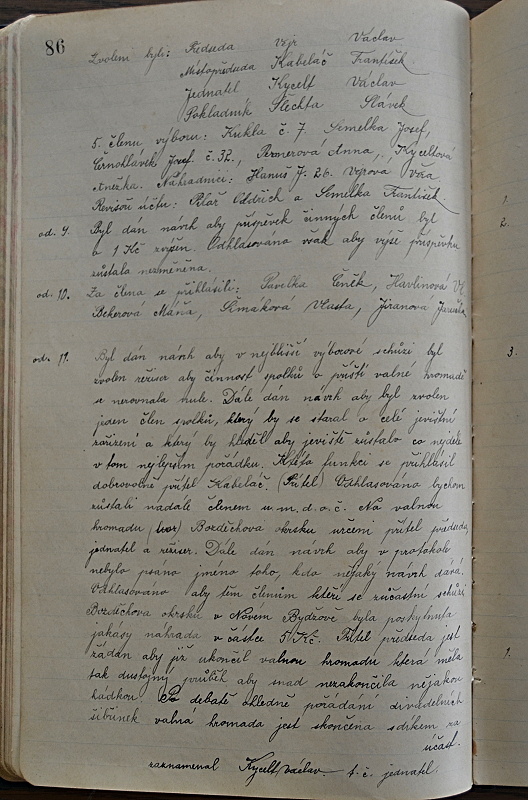 86
Zvoleni byli: Předseda Vejr Václav
Místopředseda Kabeláč František.
Jednatel Kycelt Václav
Pokladník Šlechta Slávek
5. členů výboru: Kukla č. 7. Semelka Josef,
Černohlávek Josef. č. 32., Peznerová Anna, Kyceltová
Anežka. Náhradníci: Hanuš J. 26. Vejrová Věra
Revisoři účtu: Polář Oldřich a Semelka František.
od. 9. Byl dán návrh aby příspěvek činných členů byl
o 1 Kč zvýšen. Odhlasováno však aby výše příspěvku
zůstala nezměněna.
od. 10. Za člena se přihlásili: Pavelka Čeněk, Havlinová Vl
Bekerová Máňa, Šimáková Vlasta, Jiranová Jaruška
od. 11. Byl dán návrh aby v nejbližší výborové schůzi byl
zvolen režisér aby činnost spolků v příští valné hromadě
se nerovnala nule. Dále dán návrh aby byl zvolen
jeden člen spolků, který by se staral o celé jevištní
zařízení a který by hleděl aby jeviště zůstalo co nejdéle
v tom nejlepším pořádku. K této funkci se přihlásil
dobrovolně přítel Kabeláč. (Přítel) Odhlasováno bychom
zůstali nadále členem ú.m.d.o.č. Na valnou
hromadu Bozděchova okrsku určeni přítel předseda,
jednatel a režiser. Dále dán návrh aby v protokole
nebylo psáno jméno toho, kdo nějaký návrh dává.
Odhlasováno aby těm členům kteří se zúčastní schůzí
Bozděchova okrsku v Novém Bydžově byla poskytnuta
jakási náhrada v částce 5 Kč. Přítel předseda jest
žádán aby již ukončil valnou hromadu která měla
tak důstojný průběh aby snad nezakončila nějakou
hádkou. Po debatě ohledně pořádání divadelních
šibřinek valná hromada jest skončena s díkem za
účast.
zaznamenal Kycelt Václav t. č. jednatel.
1.
2.
3.
1.